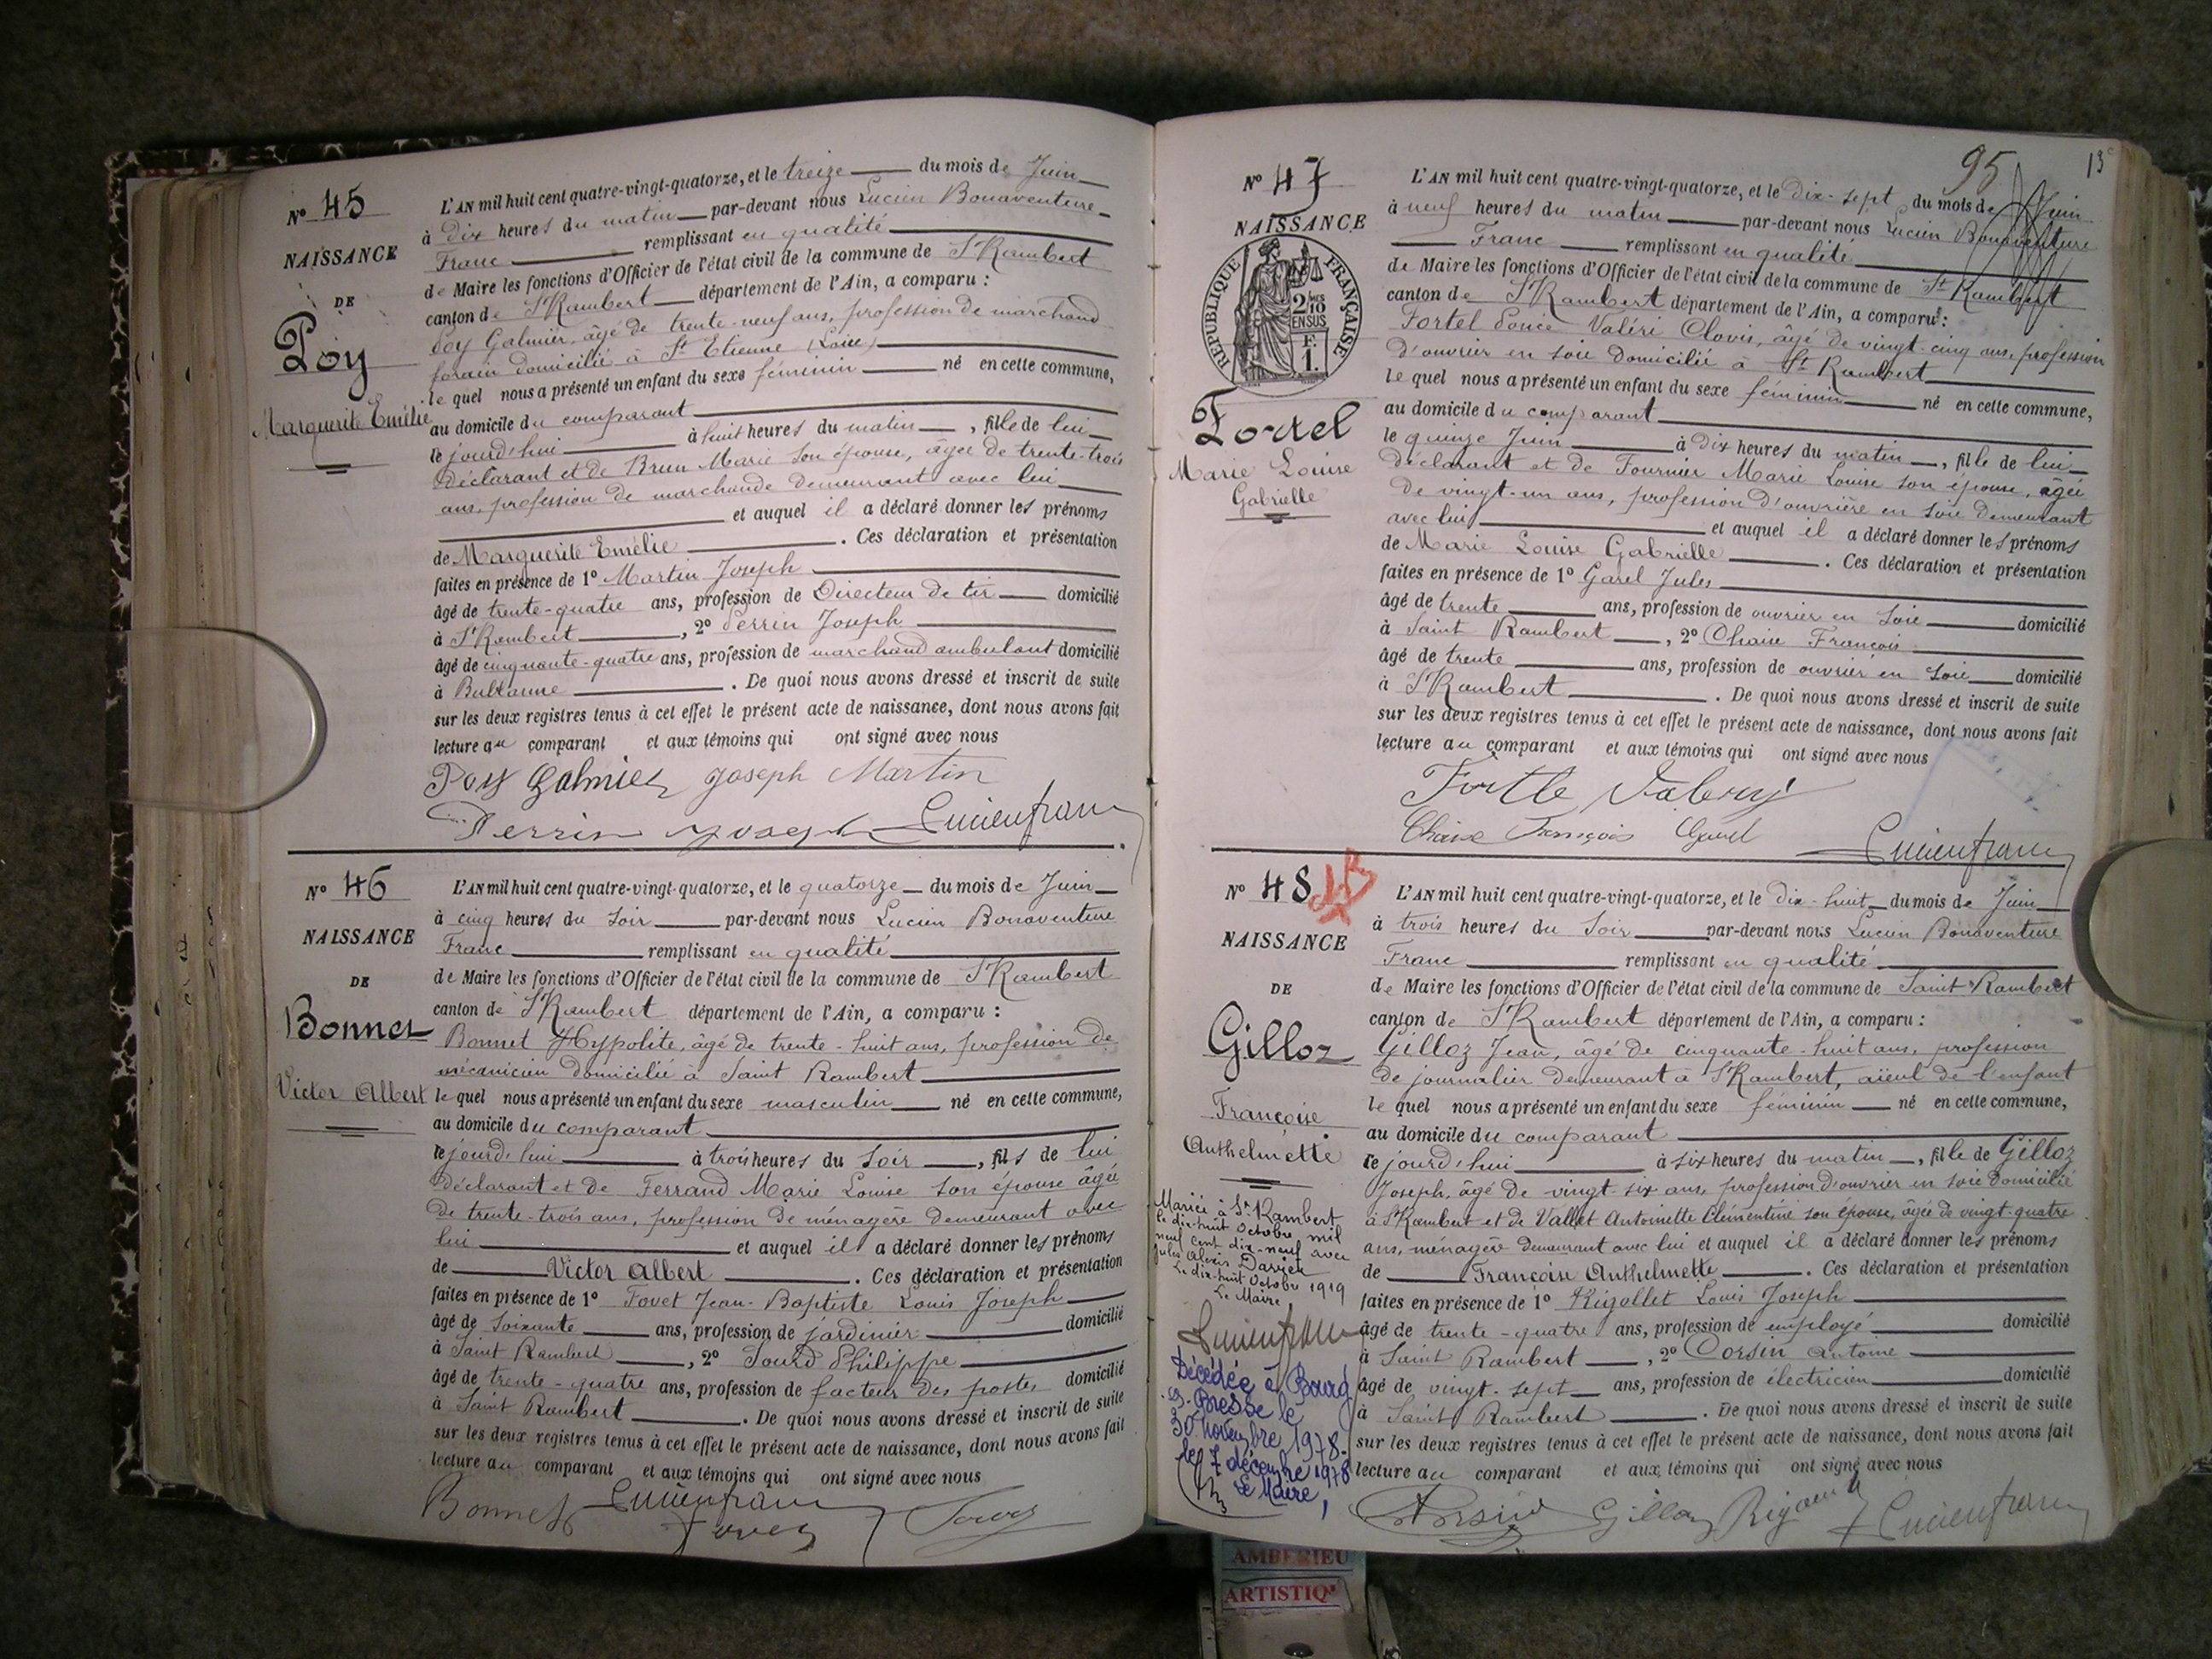 N° 45
NAISSANCE
DE
Poy
Marguerite Emélie
L'AN mil huit cent quatre-vingt-quatorze, et le treize du mois de Juin
à Dix heures du matin par-devant nous Lucien Bonaventure
Franc remplissant en qualité
de Maire les fonctions d'Officier de l'état civil de la commune de St Rambert
canton de St Rambert département de l'Ain, a comparu :
Poy Galmier, âgé de trente-neuf ans, profession de marchand
forain domicilié à St Etienne (Loire)
lequel nous a présenté un enfant du sexe féminin né en cette commune,
au domicile du comparant
le jourd'hui à huit heures du matin, fille de lui
déclarant et de Brun Marie son épouse, âgée de trente-trois
ans, profession de marchande demeurant avec lui
et auquel il a déclaré donner les prénoms
de Marguerite Emélie. Ces déclaration et présentation
faites en présence de 1° Martin Joseph
âgé de trente-quatre ans, profession de Directeur de tir domicilié
à St Rambert, 2° Perrin Joseph
âgé de cinquante-quatre ans, profession de marchand ambulant domicilié
à. De quoi nous avons dressé et inscrit de suite
sur les deux registres tenus à cet effet le présent acte de naissance, dont nous avons fait
lecture au comparant et aux témoins qui ont signé avec nous
Poy Galmier Joseph Martin
Perrin Joseph Lucien franc
N° 46
NAISSANCE
DE
Bonnet
Victor Albert
L'AN mil huit cent quatre-vingt-quatorze, et le quatorze du mois de Juin
à cinq heures du soir par-devant nous Lucien Bonaventure
Franc remplissant en qualité
de Maire les fonctions d'Officier de l'état civil de la commune de St Rambert
canton de St Rambert département de l'Ain, a comparu :
Bonnet Hypolite, âgé de trente-huit ans, profession de
mécanicien domicilié à Saint Rambert
lequel nous a présenté un enfant du sexe masculin né en cette commune,
au domicile du comparant
le jourd'hui à trois heures du soir, fils de lui
déclarant et de Ferrand Marie Louise son épouse âgée
de trente-trois ans, profession de ménagère demeurant avec
lui et auquel il a déclaré donner les prénoms
de Victor Albert. Ces déclaration et présentation
faites en présence de 1° Fovet Jean-Baptiste Louis Joseph
âgé de soixante ans, profession de jardinier domicilié
à Saint Rambert, 2° Sourd Philippe
âgé de trente-quatre ans, profession de facteur des postes domicilié
à Saint Rambert. De quoi nous avons dressé et inscrit de suite
sur les deux registres tenus à cet effet le présent acte de naissance, dont nous avons fait
lecture au comparant et aux témoins qui ont signé avec nous
Bonnet Lucien franc
Fovet Sourd
95 13
N° 47
NAISSANCE
REPUBLIQUE FRANÇAISE
2/10 EN SUS
F. 1.
Fortel
Marie Louise
Gabrielle
L'AN mil huit cent quatre-vingt-quatorze, et le Dix-sept du mois de Juin
à neuf heures du matin par-devant nous Lucien Bonaventure
Franc remplissant en qualité
de Maire les fonctions d'Officier de l'état civil de la commune de St Rambert
canton de St Rambert département de l'Ain, a comparu :
Fortel Valéri Clovis, âgé de vingt-cinq ans, profession
d'ouvrier en soie domicilié à St Rambert
lequel nous a présenté un enfant du sexe féminin né en cette commune,
au domicile du comparant
le quinze Juin à dix heures du matin, fille de lui
déclarant et de Fournier Marie Louise son épouse, âgée
de vingt-un ans, profession d'ouvrière en soie demeurant
avec lui et auquel il a déclaré donner les prénoms
de Marie Louise Gabrielle. Ces déclaration et présentation
faites en présence de 1° Garel Jules
âgé de trente ans, profession de ouvrier en soie domicilié
à Saint Rambert, 2° Chaise François
âgé de trente ans, profession de ouvrier en soie domicilié
à St Rambert. De quoi nous avons dressé et inscrit de suite
sur les deux registres tenus à cet effet le présent acte de naissance, dont nous avons fait
lecture au comparant et aux témoins qui ont signé avec nous
Fortle Valery
Chaise François Garel
Lucien franc
N° 48
NAISSANCE
DE
Gilloz
Françoise
Anthelmette
Mariée à St Rambert
le dix-huit Octobre mil
neuf cent dix-neuf avec
Jules Alexis
Le dix-huit Octobre 1919
Le Maire
Lucien franc
Décédée à Bourg
en-Bresse le
30 Novembre 1978.
le 7 décembre 1978
Le Maire,
L'AN mil huit cent quatre-vingt-quatorze, et le dix-huit du mois de Juin
à trois heures du soir par-devant nous Lucien Bonaventure
Franc remplissant en qualité
de Maire les fonctions d'Officier de l'état civil de la commune de Saint Rambert
canton de St Rambert département de l'Ain, a comparu :
Gilloz Jean, âgé de cinquante-huit ans, profession
de journalier demeurant à St Rambert, aïeul de l'enfant
lequel nous a présenté un enfant du sexe féminin né en cette commune,
au domicile du comparant
le jourd'hui à six heures du matin, fille de Gilloz
Joseph, âgé de vingt-six ans, profession d'ouvrier en soie domicilié
à St Rambert et de Vallet Antoinette Clémentine son épouse, âgée de vingt-quatre
ans, ménagère demeurant avec lui et auquel il a déclaré donner les prénoms
de Françoise Anthelmette. Ces déclaration et présentation
faites en présence de 1° Rigollet Louis Joseph
âgé de trente-quatre ans, profession de employé domicilié
à Saint Rambert, 2° Corsin Antoine
âgé de vingt-sept ans, profession de électricien domicilié
à Saint Rambert. De quoi nous avons dressé et inscrit de suite
sur les deux registres tenus à cet effet le présent acte de naissance, dont nous avons fait
lecture au comparant et aux témoins qui ont signé avec nous
Corsin Gilloz Lucien franc
AMBERIEU
ARTISTIQ